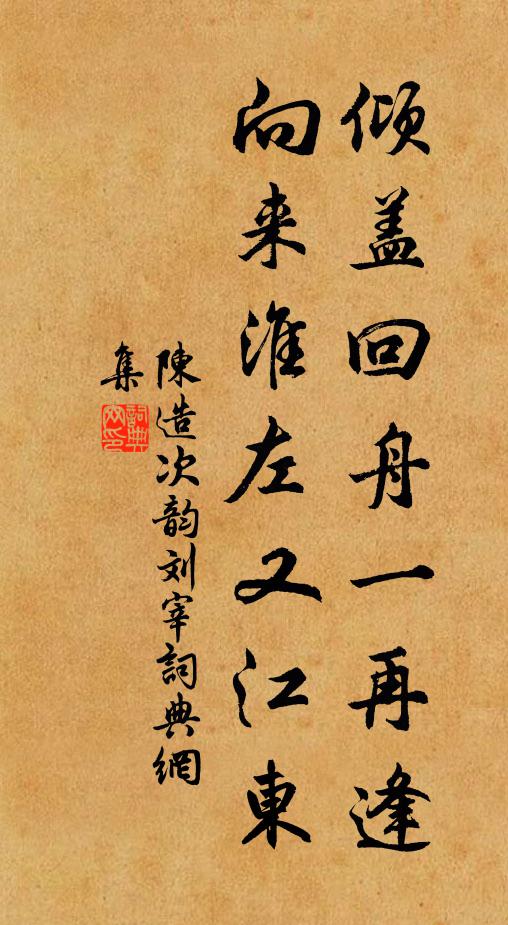 倾盖回舟一再逢
向来淮左又江东
陳造次韵刘宰詞典網
集
詞典
网印